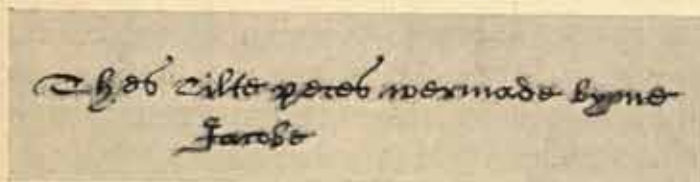 Thes Tilte peces wermade by me
Jacobe